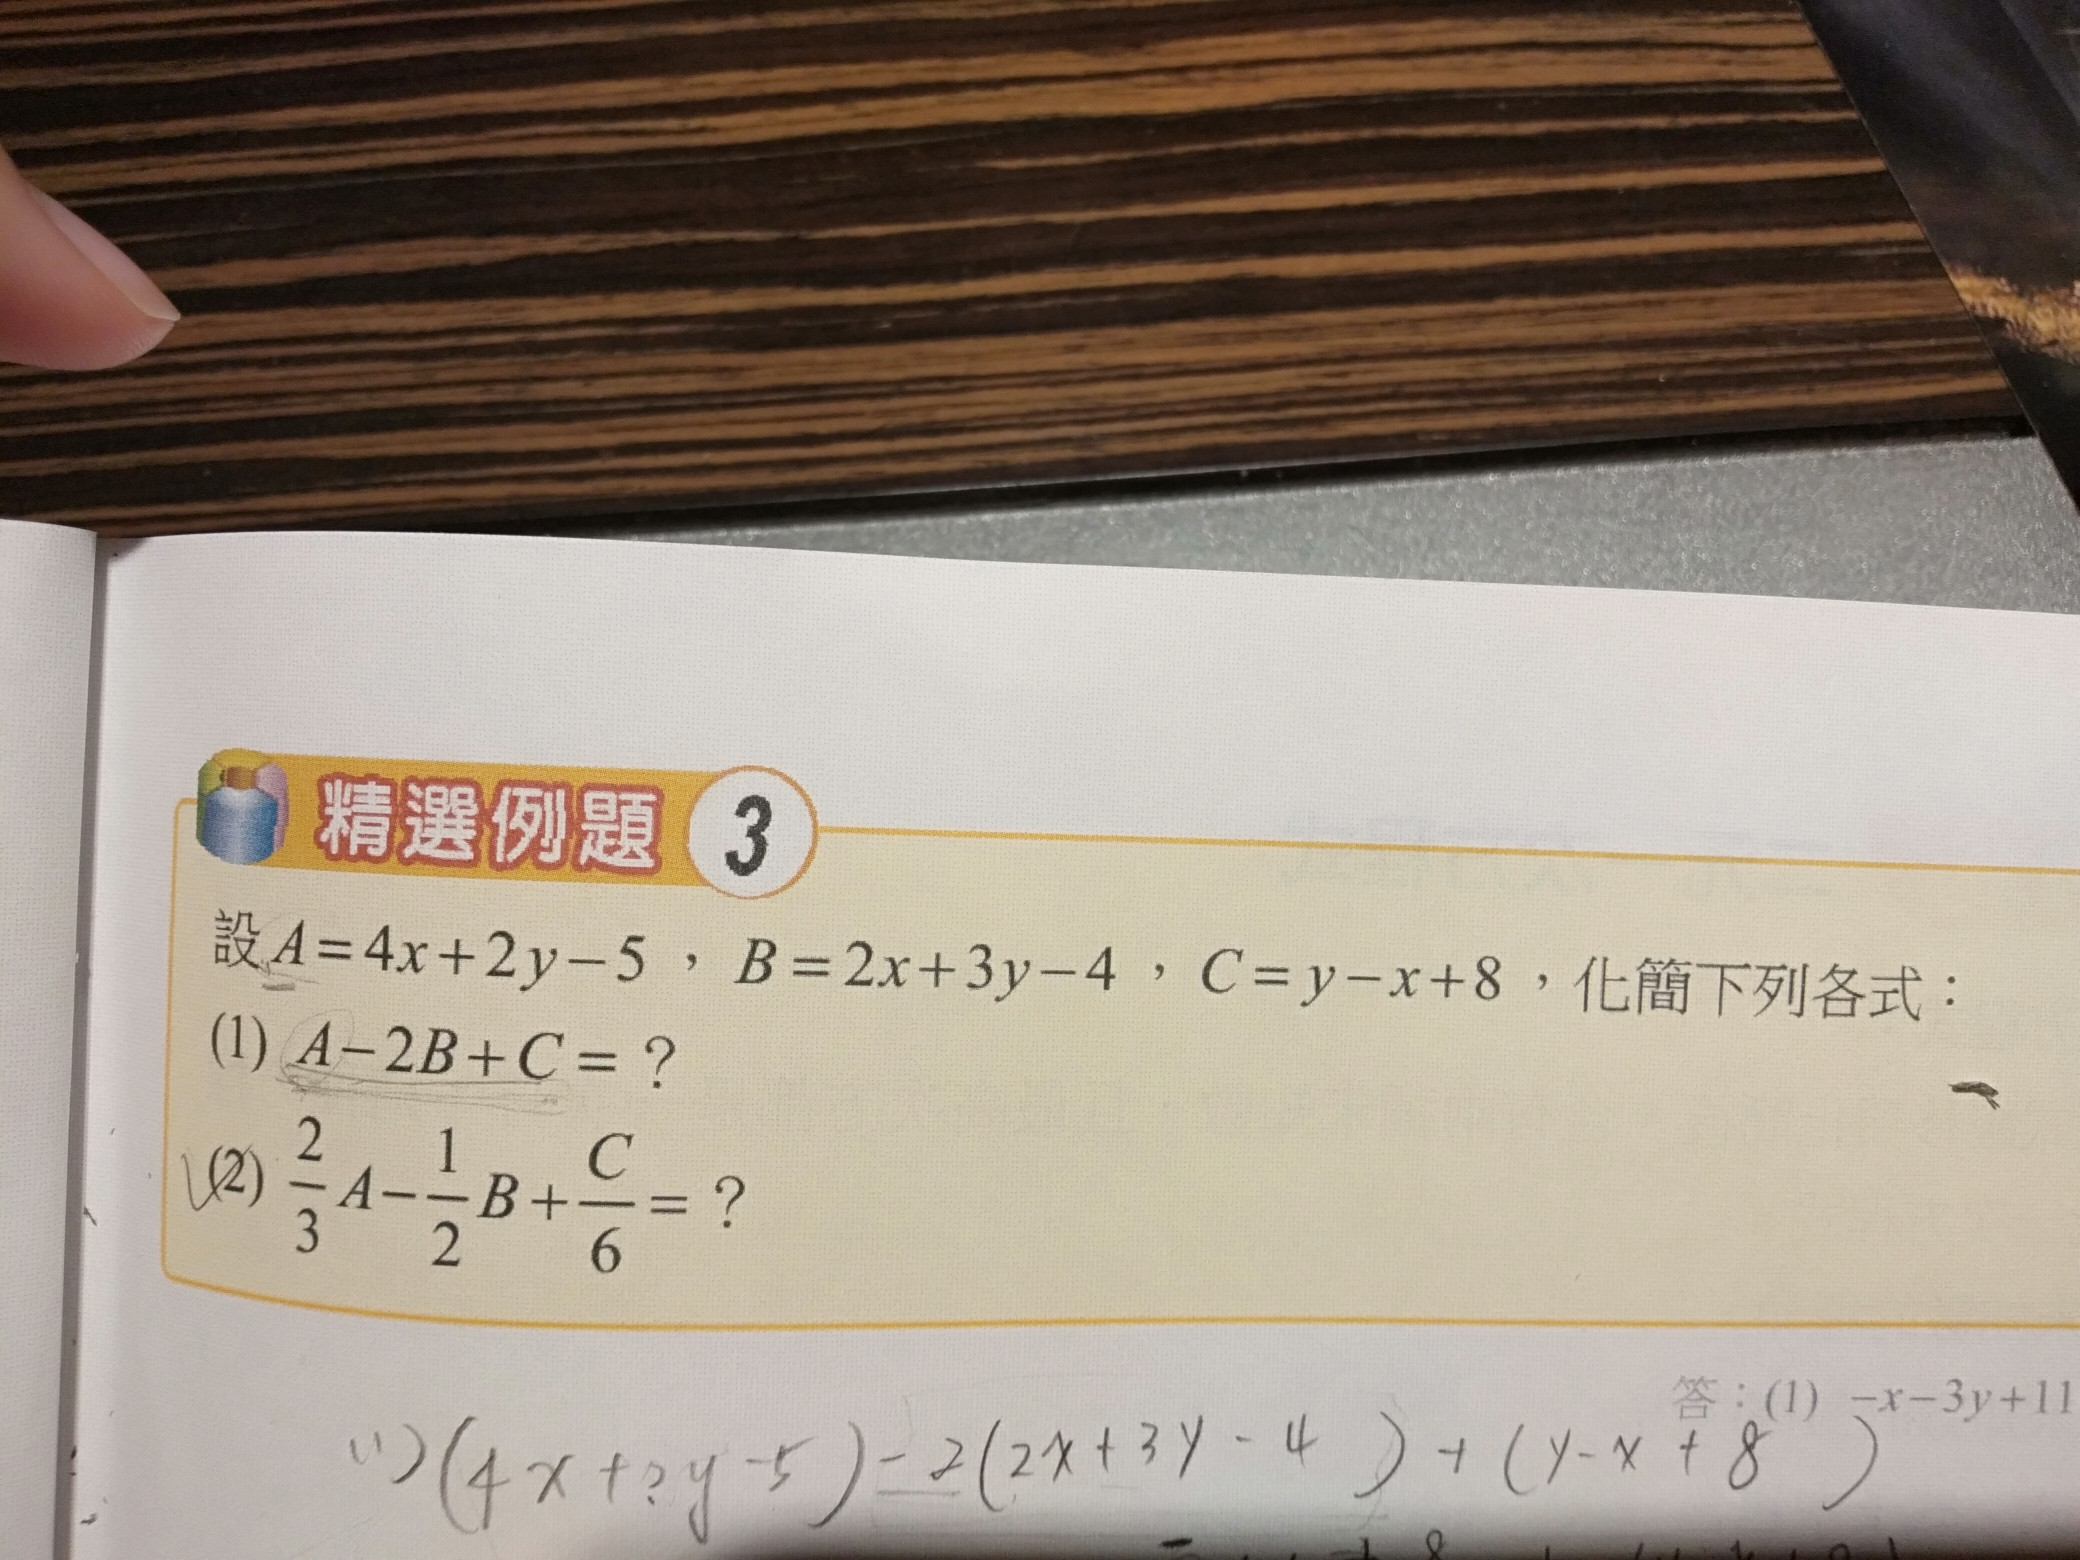 精選例題 3
設A=4x+2y-5，B=2x+3y-4，C=y-x+8，化簡下列各式：
(1) A-2B+C=？
(2) 2/3 A-1/2 B+C/6=？
答：(1) -x-3y+11
(1)(4x+2y-5)-2(2x+3y-4)+(y-x+8)